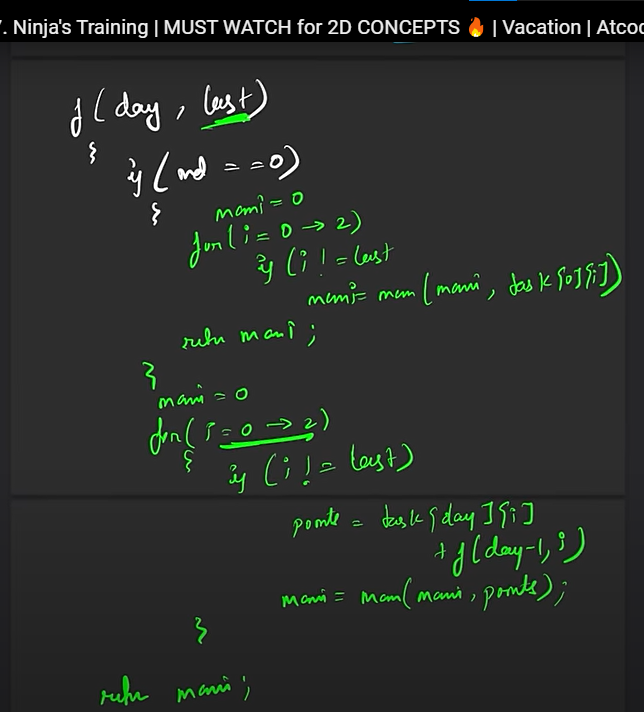 7. Ninja's Training | MUST WATCH for 2D CONCEPTS 🔥 | Vacation | Atcod
f(day, last)
{
if (ind == 0)
{
maxi = 0
for(i = 0 → 2)
if (i != last
maxi = max(maxi, task[0][i])
return maxi;
}
maxi = 0
for(i = 0 → 2)
{
if (i != last)
points = task[day][i]
+ f(day-1, i)
maxi = max(maxi, points);
}
return maxi;